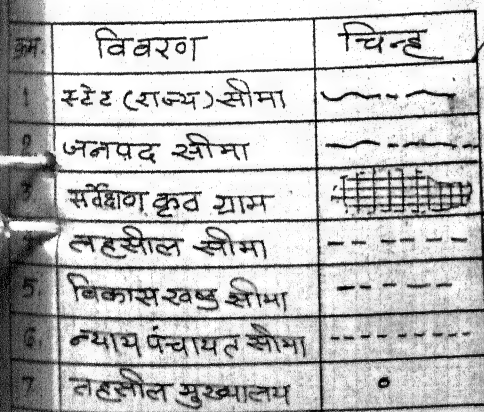 क्रम. विवरण चिन्ह
1 स्टेट (राज्य) सीमा
2 जनपद सीमा
3 सर्वेक्षण कृत ग्राम
4 तहसील सीमा
5. विकास खण्ड सीमा
6. न्याय पंचायत सीमा
7 तहसील मुख्यालय